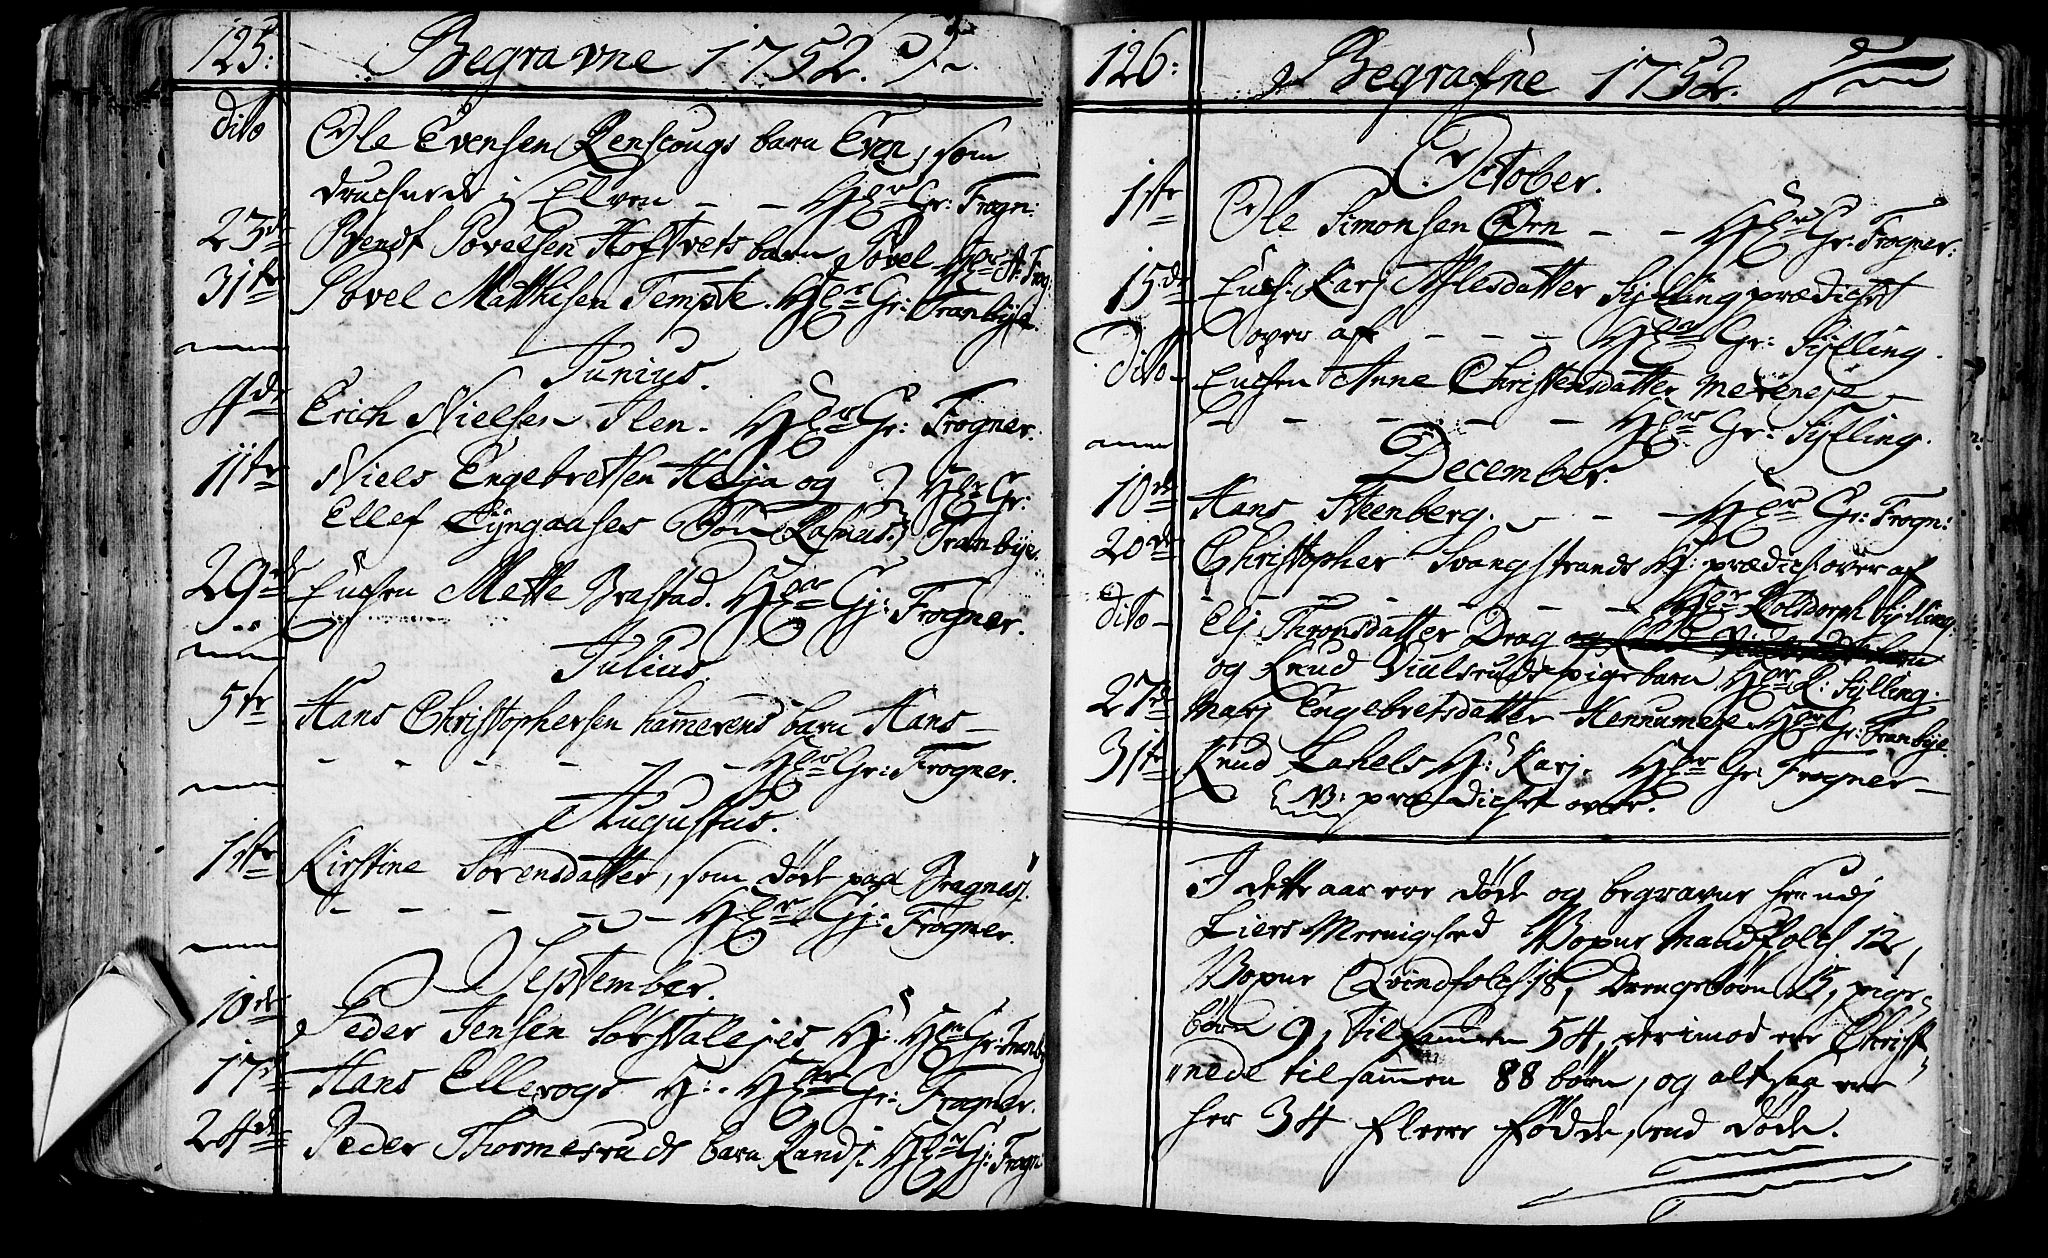 125: Begravne 1752.
dito Ole Evensen Renscougs barn Even, som
druchnede i Elven - - Hr: Gr: Frogn:
23de Bendt Povelsen Hoftvets barn Povel Hr: A: Frog:
31te Povel Matthisen Tempte. Hr: Gr: Tranbye.
Junius.
4de Erich Nielsen Alen. Hr: Gr: Frogner.
11te Niels Engebretsen Heja og } Hr: Gr:
Ellef Lyngaases Søn Rasmus. } Tranbye.
29de Enchen Mette Brastad. Hr: Gr: Frogner.
Julius.
5te Hans Christophersen hammerens barn Hans -
- - - - - Hr: Gr: Frogner.
Augustus.
1ste Kirstine Sørensdatter, som døde paa Bragnæs.
- - - - - Hr: Gr: Frogner.
September.
10de Peder Jensen Hr: Gr: Tranb:
17de Hans Ellevogs H: Hr: Gr: Frogner.
24de Peder Thormesruds barn Randj. Hr: Gr: Frogn:
126: Begrafne 1752.
October.
1ste Ole Simonsen Ørn - - Hr: Gr: Frogner.
15de Ench: Karj Aslesdatter Sylling prædichet
over af - - - Hr: Gr: Sylling.
Dito - Enchen Anne Christensdatter Mereneje -
- - - - - Hr: Gr: Sylling.
December.
10de Hans Steenberg. - - - Hr: Gr: Frogn:
20de Christopher Svangstrands H: prædich: over af
- - - - - - Hr: Rolsdorph Sylling.
dito - Elj Thronsdatter Drag og Knud
og Knud Viulsruds pigebarn Hr: R: Sylling.
27de Marj Engebretsdatter Hennumeje Hr: Gr: Tranbye.
31te Knud Lahels H: Karj. Hr: Gr: Frogner -
NB: prædichet over.
I dette aar ere døde og begravne her udj
Liers Menighed Voxne Mandfolch 12,
Voxne Qvindfolch 18, Drengebørn 15, pige-
børn 9, tilsammen 54, derimod ere Christ-
nede tilsammen 88 børn, og altsaa ere
her 34 fleere fødde, end døde.